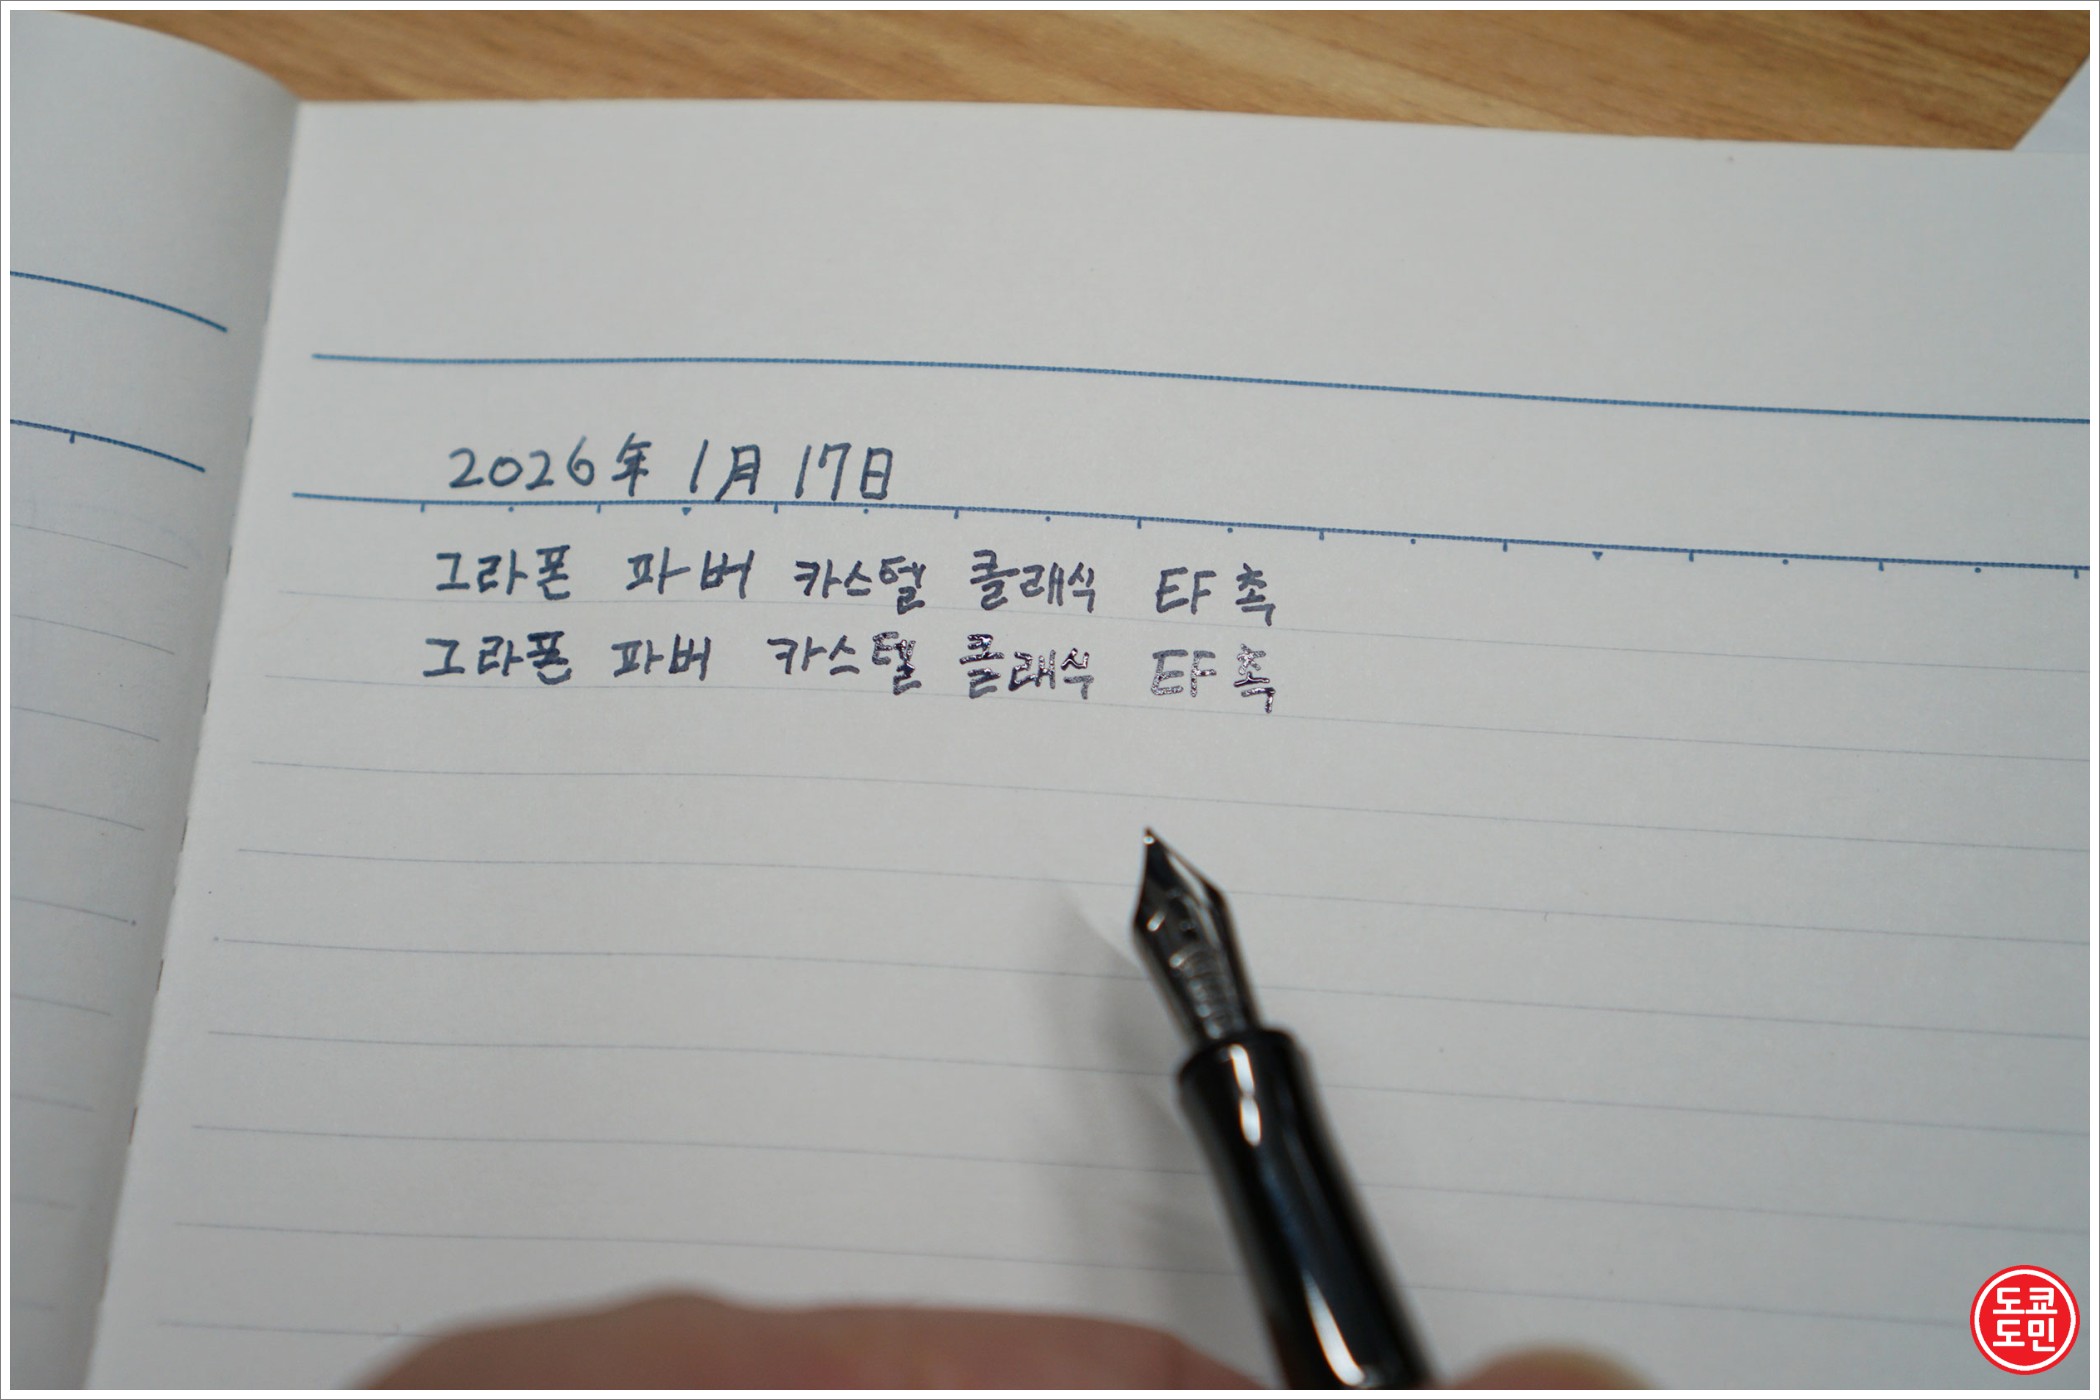 2026年 1月 17日
그라폰 파버 카스텔 클래식 EF 촉
그라폰 파버 카스텔 클래식 EF 촉
도쿄
도민